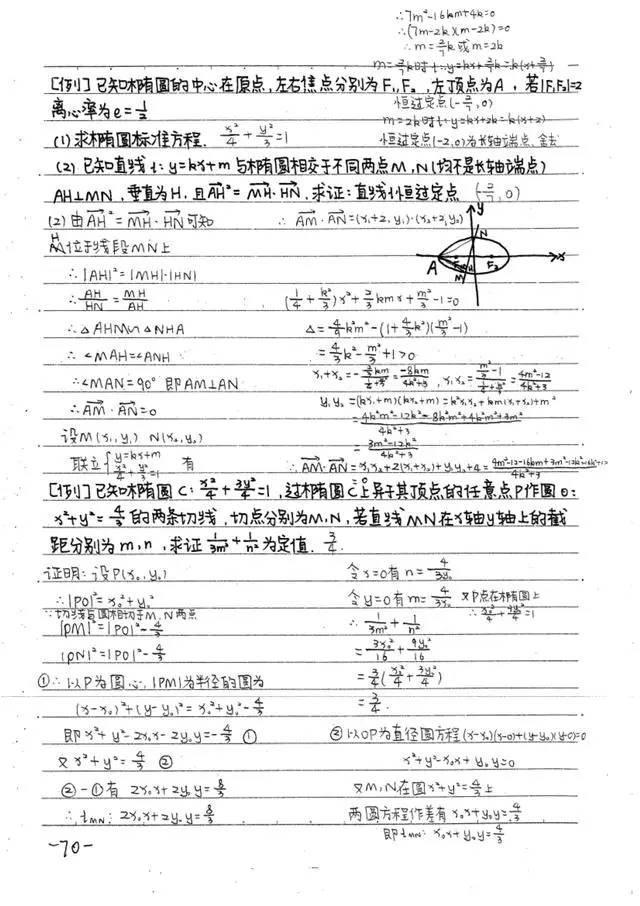 ∴7m²-16km+4k²=0
∴(7m-2k)(m-2k)=0
∴m=2/7k或m=2k
m=2/7k时 l:y=kx+2/7k=k(x+2/7)
[例]已知椭圆的中心在原点,左右焦点分别为F₁,F₂,左顶点为A,若|F₁F₂|=2
恒过定点(-2/7,0)
离心率为e=1/2
m=2k时 l:y=kx+2k=k(x+2)
(1)求椭圆标准方程. x²/4+y²/3=1
恒过定点(-2,0)为长轴端点、舍去
(2)已知直线l:y=kx+m与椭圆相交于不同两点M,N(均不是长轴端点)
AH⊥MN,垂直为H,且AH²=MH·HN,求证:直线l恒过定点 (-2/7,0)
(2)由AH²=MH·HN可知
H位于线段MN上
∴|AH|²=|MH|·|HN|
∴AH/HN=MH/AH
∴△AHM∽△NHA
∴∠MAH=∠ANH
∴∠MAN=90° 即AM⊥AN
∴AM·AN=0
设M(x₁,y₁) N(x₂,y₂)
联立{y=kx+m x²/4+y²/3=1 有
∴AM·AN=(x₁+2,y₁)·(x₂+2,y₂)
y
N
A F₁ H F₂ x
M
(1/4+k²/3)x²+2/3kmx+m²/3-1=0
△=4/9k²m²-(1+4/3k²)(m²/3-1)
=4/3k²-m²/3+1>0
x₁+x₂=-(2/3km)/(1/4+k²/3)=-8km/(4k²+3), x₁x₂=(m²/3-1)/(1/4+k²/3)=(4m²-12)/(4k²+3)
y₁y₂=(kx₁+m)(kx₂+m)=k²x₁x₂+km(x₁+x₂)+m²
=(4k²m²-12k²-8k²m²+4k²m²+3m²)/(4k²+3)
=(3m²-12k²)/(4k²+3)
∴AM·AN=x₁x₂+2(x₁+x₂)+y₁y₂+4=(4m²-12-16km+3m²-12k²+16k²+12)/(4k²+3)
[例]已知椭圆C:x²/4+3y²/4=1,过椭圆C上异于其顶点的任意点P作圆O:
x²+y²=4/3的两条切线,切点分别为M,N,若直线MN在x轴y轴上的截
距分别为m,n,求证1/3m²+1/n²为定值. 3/4.
证明:设P(x₀,y₀)
∴|PO|²=x₀²+y₀²
∵切线与圆相切于M,N两点
|PM|²=|PO|²-4/3
|PN|²=|PO|²-4/3
①∴以P为圆心,|PM|为半径的圆为
(x-x₀)²+(y-y₀)²=x₀²+y₀²-4/3
即x²+y²-2x₀x-2y₀y=-4/3 ①
又x²+y²=4/3 ②
②-①有 2x₀x+2y₀y=8/3
∴l MN:2x₀x+2y₀y=8/3
令x=0有n=4/3y₀
令y=0有m=4/3x₀ 又P点在椭圆上
∴x₀²/4+3y₀²/4=1
∴1/3m²+1/n²
=3x₀²/16+9y₀²/16
=3/4(x₀²/4+3y₀²/4)
=3/4.
②以OP为直径圆方程(x-x₀)(x-0)+(y-y₀)(y-0)=0
x²+y²-x₀x+y₀y=0
又M,N在圆x²+y²=4/3上
两圆方程作差有x₀x+y₀y=4/3
即l MN:x₀x+y₀y=4/3
-70-